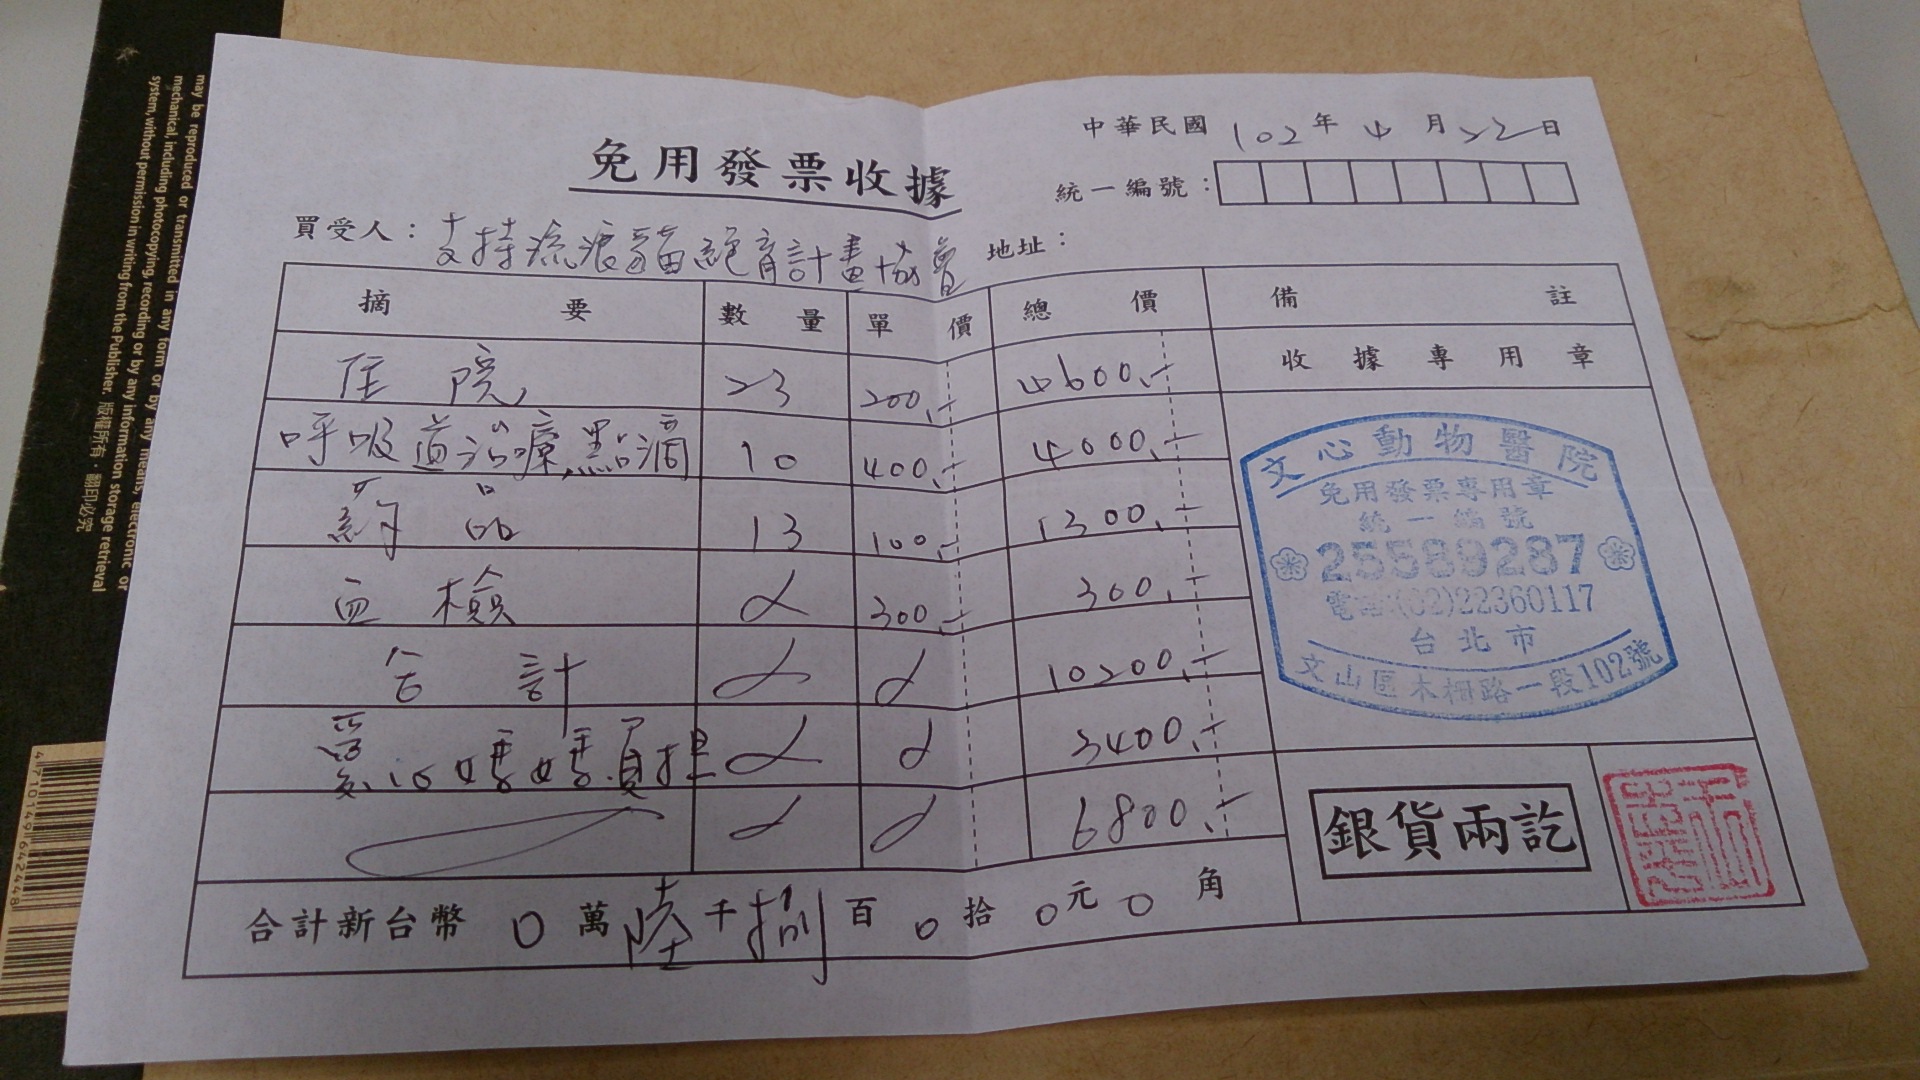 may be reproduced or transmitted in any form or by any means, electronic or
mechanical, including photocopying, recording or by any information storage retrieval
system, without permission in writing from the Publisher. 版權所有・翻印必究
4710149642448
中華民國 102 年 4 月 22 日
免用發票收據
統一編號：
買受人： 支持流浪貓絕育計畫協會 地址：
摘要 數量 單價 總價 備註
收據專用章
住院 23 200.- 4600.-
呼吸道治療、點滴 10 400.- 4000.-
葯品 13 100.- 1300.-
血檢 300.- 300.-
合計 10200.-
愛心媽媽負担 3400.-
6800.-
合計新台幣 0 萬 陸 千 捌 百 0 拾 0 元 0 角
文心動物醫院
免用發票專用章
統一編號
25589287
電話:(02)22360117
台北市
文山區木柵路一段102號
銀貨兩訖